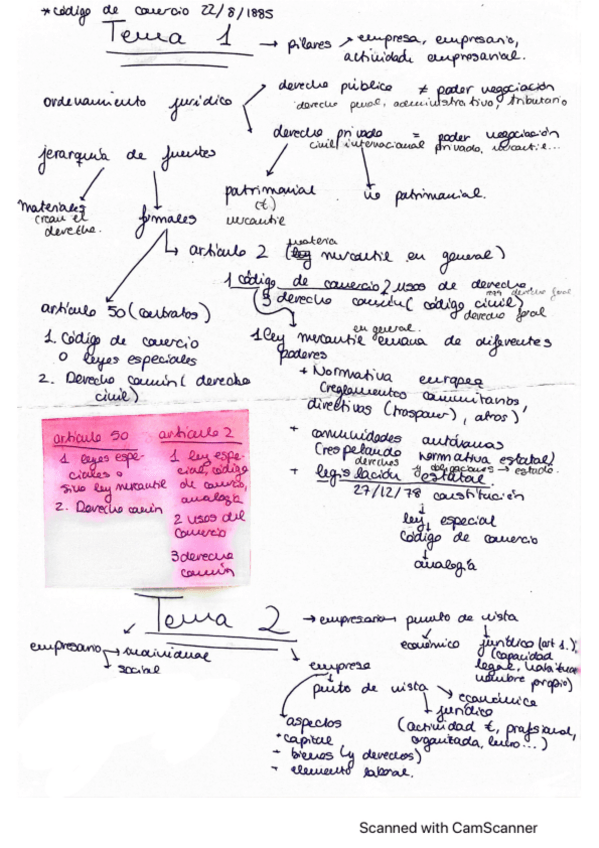 * código de comercio 22/8/1885
Tema 1 → pilares → empresa, empresario,
actividad empresarial.
ordenamiento jurídico
derecho público ≠ poder negociación
derecho penal, administrativo, tributario
derecho privado = poder negociación
civil, internacional privado, mercantil...
jerarquía de fuentes
materiales
crean el
derecho.
formales
patrimonial
(€)
mercantil
no patrimonial.
↳ artículo 2 (ley mercantil en general)
materia
1 código de comercio 2 usos de derecho
3 derecho común (código civil)
derecho foral
artículo 50 (contratos)
1. Código de comercio
o leyes especiales
2. Derecho común (derecho
civil)
1 ley mercantil emana de diferentes
en general.
poderes
+ Normativa europea
(reglamentos comunitarios,
directivas (traspaner), otros)
+ comunidades autónomas
(respetando normativa estatal)
derechos y obligaciones → estado.
+ legislación estatal.
27/12/78 constitución
↓
ley especial
código de comercio
↓
analogía
artículo 50
1 leyes espe-
ciales o
sino ley mercantil
2. Derecho común
artículo 2
1 ley espe-
cial, código
de comercio,
analogía
2 usos del
comercio
3 derecho
común
Tema 2 → empresario → punto de vista
económico
jurídico (art 1.)
(capacidad
legal, habitual
nombre propio)
empresario → individual
↘ social
empresa
↓
punto de vista → económico
↓ jurídico
(actividad €, profesional,
organizada, lucro...)
aspectos
* capital
+ bienes (y derechos)
+ elemento laboral.
Scanned with CamScanner